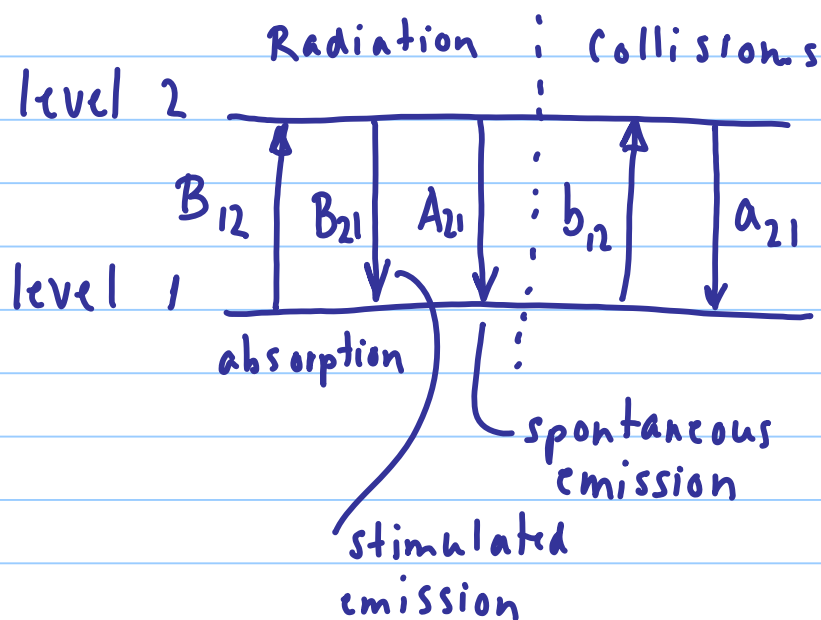 Radiation
Collisions
level 2
B12
B21
A21
b12
a21
level 1
absorption
spontaneous
emission
stimulated
emission